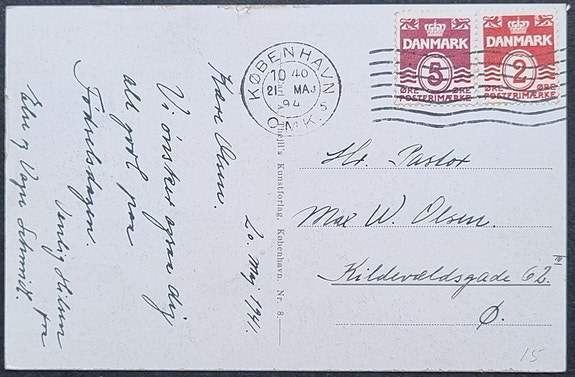 Kære Onne.
Vi ønsker ogsaa dig
alt godt paa
Fødselsdagen.
Venlig Hilsen fra
Else og Vagn Schmidt.
20. Maj 1941.
Kunstforlag. København. Nr. 8.
KØBENHAVN
10 40
21 MAJ
194
OMK.
5
DANMARK
5
ØRE ØRE
POSTFRIMÆRKE
DANMARK
2
ØRE ØRE
POSTFRIMÆRKE
Hr. Pastor
Max W. Olsen.
Kildevældsgade 62.
Ø.
15